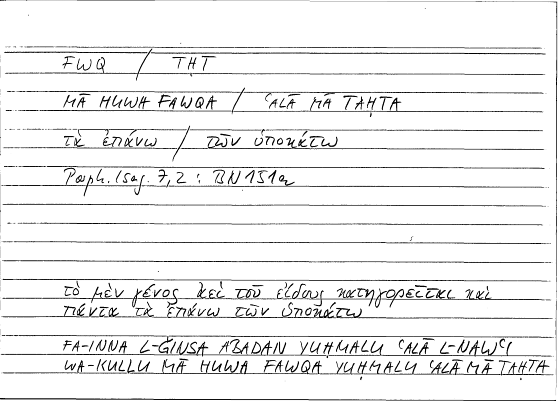 FWQ / TḤT
MĀ HUWA FAWQA / ʿALĀ MĀ TAḤTA
τὰ ἐπάνω / τῶν ὑποκάτω
Porph. Isag. 7,2 : BN 151a
τὸ μὲν γένος ἀεὶ τοῦ εἴδους κατηγορεῖται καὶ
πάντα τὰ ἐπάνω τῶν ὑποκάτω
FA-INNA L-ǦINSA ABADAN YUḤMALU ʿALĀ L-NAWʿI
WA-KULLU MĀ HUWA FAWQA YUḤMALU ʿALĀ MĀ TAḤTA